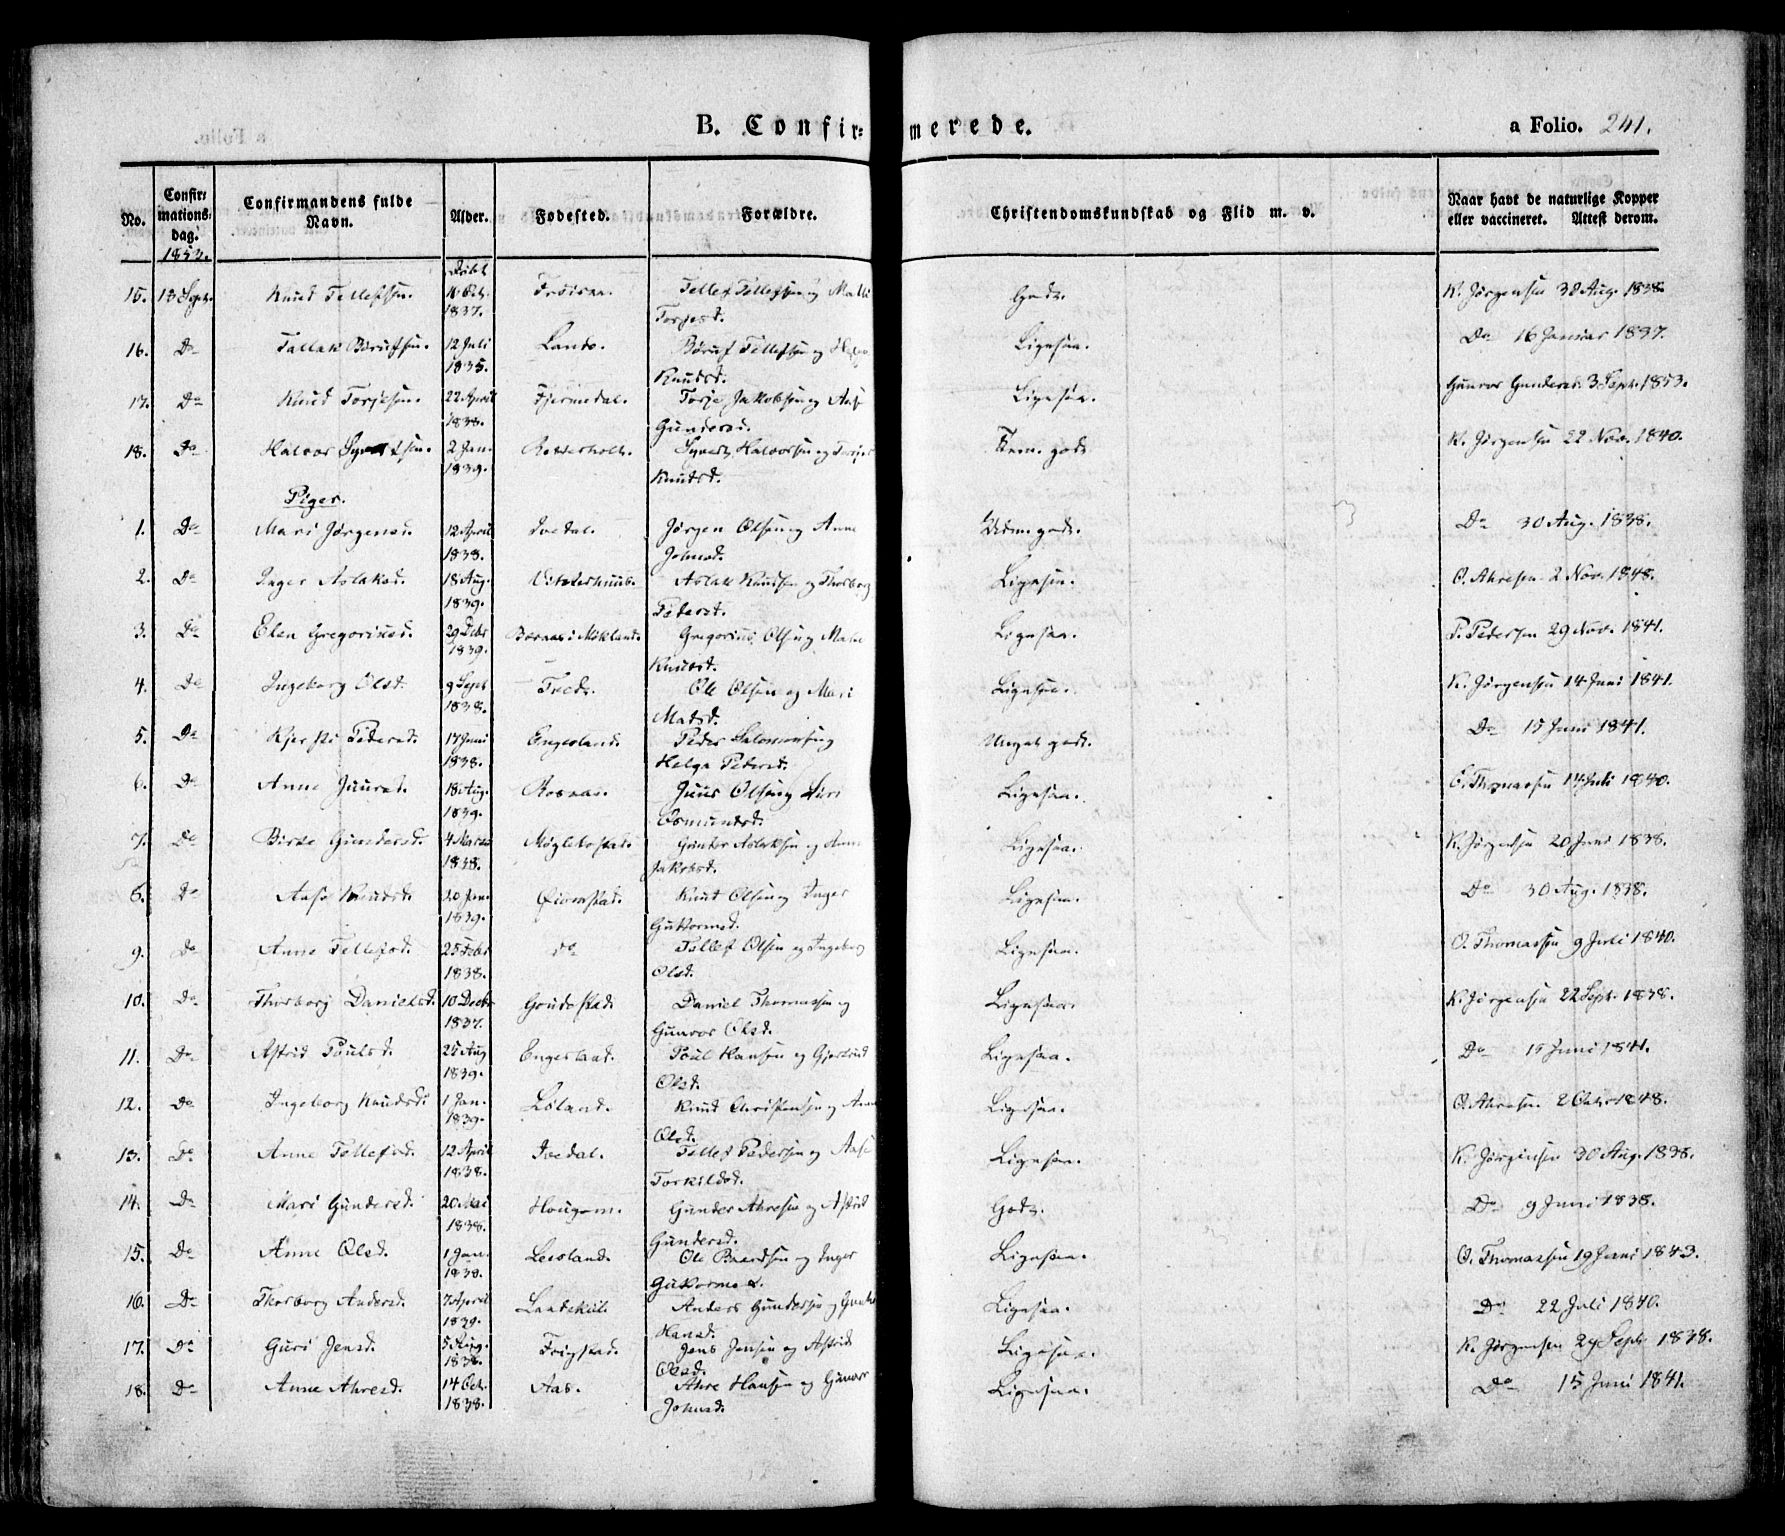 B. Confir= merede. a Folio. 241.
No. Confir= mations= dag. Confirmandens fulde Navn. Alder. Fødested. Forældre. Christendomskundskab og Flid m. v. Naar havt de naturlige Kopper eller vaccineret. Attest derom.
15. 13 Sept. Knud Tellefsen. 1837. Tellef Tellefsen og Malli Godt. K. Jørgensen 30 Aug. 1838.
Torjesd.
16. Do Tallak Børufsen. 12 Juli Lande. Børuf Tellefsen og Ligesaa. Do 16 Januar 1837.
1835. Knudsd.
17. Do Knud Torjesen. 22 April Fjermedal. Torje Jakobsen og Aase Ligesaa. Gunvor Gundersd. 3 Sept. 1853.
1838. Gundersd.
18. Do Halvor Syvertsen. 2 Jan. Syvert Halvorsen og Torjer Tem. godt K. Jørgensen 22 Nov. 1840.
1839. Knutsd.
Piger.
1. Do Mari Jørgensd. 12 April Ivedal. Jørgen Olsen og Anne Udm. godt. Do 30 Aug. 1838.
1838. Johnsd.
2. Do Inger Aslaksd. 18 Aug. Aslak Knudsen og Thorborg Ligesaa. O. Ahresen 2 Nov. 1848.
1839. Pedersd.
3. Do Elen Gregoriusd. 29 Debr Gregorius Olsen og Ligesaa. P. Pedersen 29 Nov. 1841.
1839. Knutsd.
4. Do Ingeborg Olsd. 9 Sept Trede. Ole Olsen og Mari Ligesaa. K. Jørgensen 14 Juni 1841.
1838. Matsd.
5. Do Kjersti Pedersd. 17 Juni Engesland. Peder Salomonsen og Meget godt. Do 15 Juni 1841.
1838. Helga Pedersd.
6. Do Anne Juursd. 18 Aug. Rosnæs. Juur Olsen og Siri Ligesaa. O. Thomassen 14 Juli 1840.
1839. Osmundsd.
7. Do Birte Gundersd. 4 Marts Møglebostad. Gunder Aslaksen og Anne Ligesaa. K. Jørgensen 20 Juni 1838.
1838. Jakobsd.
8. Do Aase Knudsd. 20 Jan. Knut Olsen og Inger Ligesaa. Do 30 Aug. 1838.
1839. Guttormsd.
9. Do Anne Tellefsd. 25 Febr Do Tellef Olsen og Ingeborg Ligesaa. O. Thomassen 9 Juli 1840.
1838. Olsd.
10. Do Thorborg Danielsd. 10 Decbr Daniel Thomassen og Ligesaa. K. Jørgensen 22 Sept. 1838.
1837. Gunvor Olsd.
11. Do Astrid Poulsd. 25 Aug Engesland. Poul Hansen og Gjertrud Ligesaa. Do 15 Juni 1841.
1839. Olsd.
12. Do Ingeborg Knudsd. 1 Jan. Løland. Knud Christensen og Anne Ligesaa. O. Ahresen 2 Octr 1848.
1839. Olsd.
13. Do Anne Tellefsd. 12 April Ivedal. Tellef Pedersen og Aase Ligesaa. K. Jørgensen 30 Aug. 1838.
1838. Torkildsd.
14. Do Mari Gundersd. 20 Mai Hougom. Gunder Ahresen og Astrid Godt. Do 9 Juni 1838.
1838. Gundersd.
15. Do Anne Olsd. 1 Jan. Leesland. Ole Baardsen og Inger Ligesaa. O. Thomassen 19 Juni 1843.
1838. Guttormsd.
16. Do Thorborg Andersd. 7 April Landekiil. Anders Gundersen og Ligesaa. Do 22 Juli 1840.
1839. Hansd.
17. Do Guri Jensd. 5 Aug. Frigstad. Jens Jensen og Astrid Ligesaa. K. Jørgensen 29 Sept 1838.
1838. Olsd.
18. Do Anne Ahresd. 14 Oct. Aas. Ahre Hansen og Gunvor Ligesaa. Do 15 Juni 1841.
1838. Johnsd.